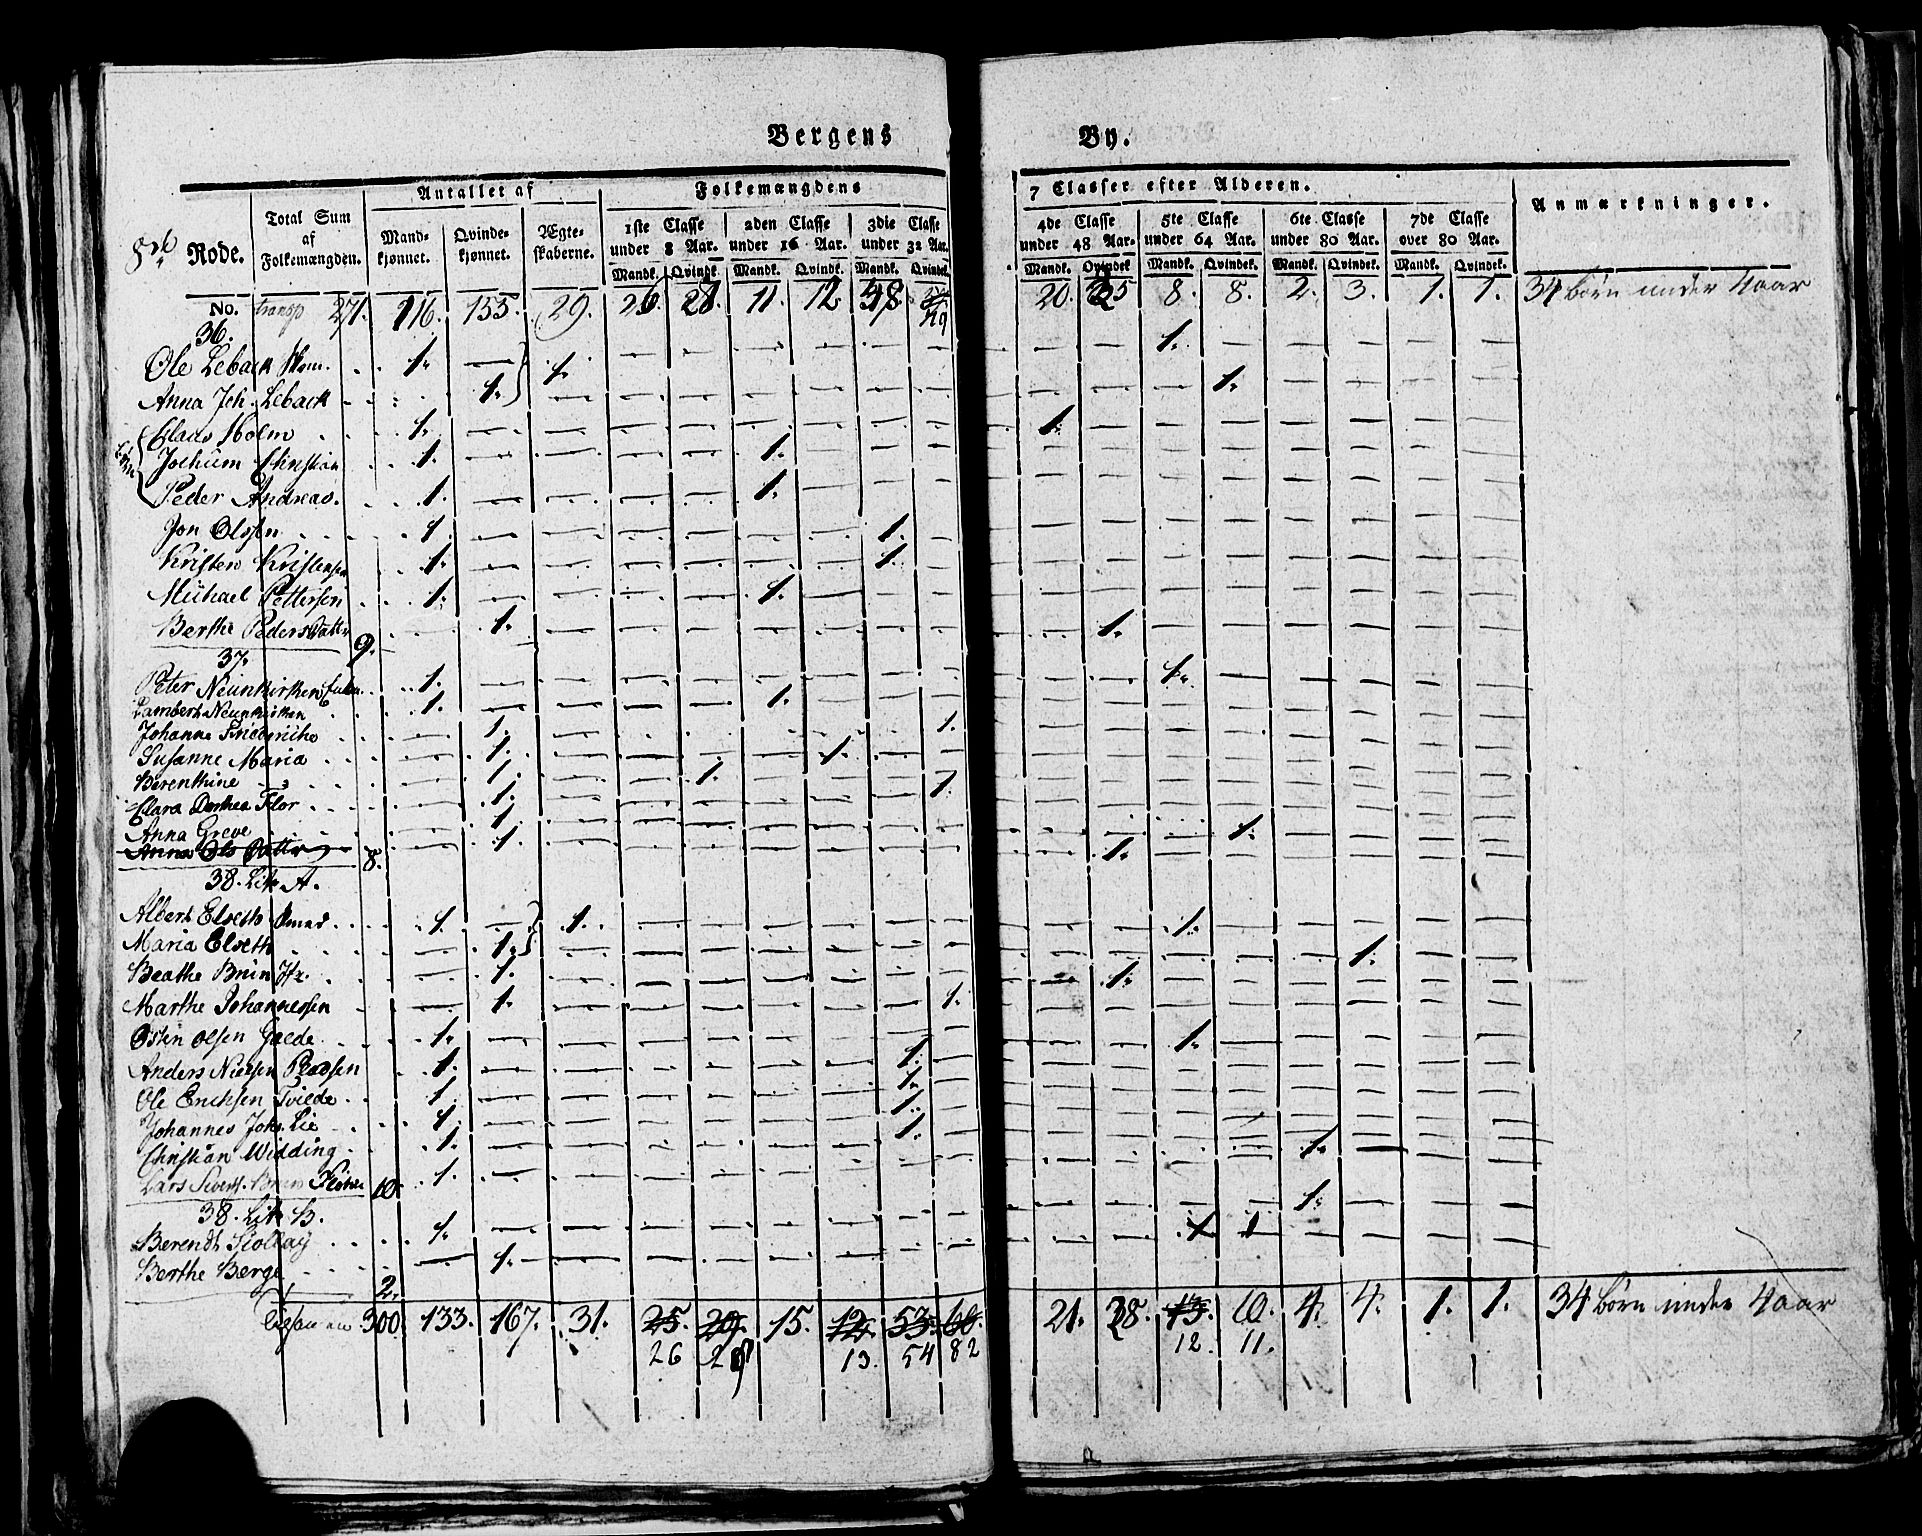 Bergens By.
8de Rode.
Total Sum af Folkemængden.
Antallet af
Mandkjønnet. Qvindekjønnet. Ægteskaberne.
Folkemængdens 7 Classer efter Alderen.
1ste Classe under 8 Aar. 2den Classe under 16 Aar. 3die Classe under 32 Aar. 4de Classe under 48 Aar. 5te Classe under 64 Aar. 6te Classe under 80 Aar. 7de Classe over 80 Aar.
Anmærkninger.
Mandk. Qvindk. Mandk. Qvindk. Mandk. Qvindek. Mandk. Qvindek. Mandk. Qvindek. Mandk. Qvindek. Mandk. Qvindek.
No. transp 271. 116. 155. 29. 26. 28. 11. 12. 48. 79 20. 25 8. 8. 2. 3. 1. 1. 34 börn under 4 aar
36.
Ole Leback Skom. 1. — 1. 1.
Anna Joh. Leback 1. 1.
Claas Holm 1. 1.
Jochum Christian 1. 1.
Peder Andreas. 1. 1.
Jon Olssen 1. 1.
Kristen Kristensen 1. 1.
Michael Pettersen 1. 1.
Berthe Pedersdattr 9. 1. 1.
37.
Peter Neunkirken 1. 1.
Lambert Neunkirken 1. 1.
Johanne Friderniche 1. 1.
Susanne Maria 1. 1.
Berenthine 1. 1.
Clara Dorthea Flor 1. 1.
Anna Greve 1. 1.
Anna Ols Dattr 8. 1. 1.
38. Litr A.
Albert Elseth 1. — 1. 1.
Maria Elseth 1. 1.
Beathe Brun Jfr. 1. 1.
Marthe Johannessen 1. 1.
Osten Olsen Gjelde 1. 1.
Anders Nielsen 1. 1.
Ole Erichsen Tvilde 1. 1.
Johannes Johs. Lie 1. 1.
Christian Widding 1. 1.
Lars Sivert. 10. 1. 1.
38. Litr B.
Berendt 1. 1
Berthe Berge 2. 1. 1
300 133. 167. 31. 25. 29. 15. 12. 53. 60. 21. 28. 13. 10. 4. 4. 1. 1. 34 börn under 4 aar
26 28 13. 54 82 12. 11.